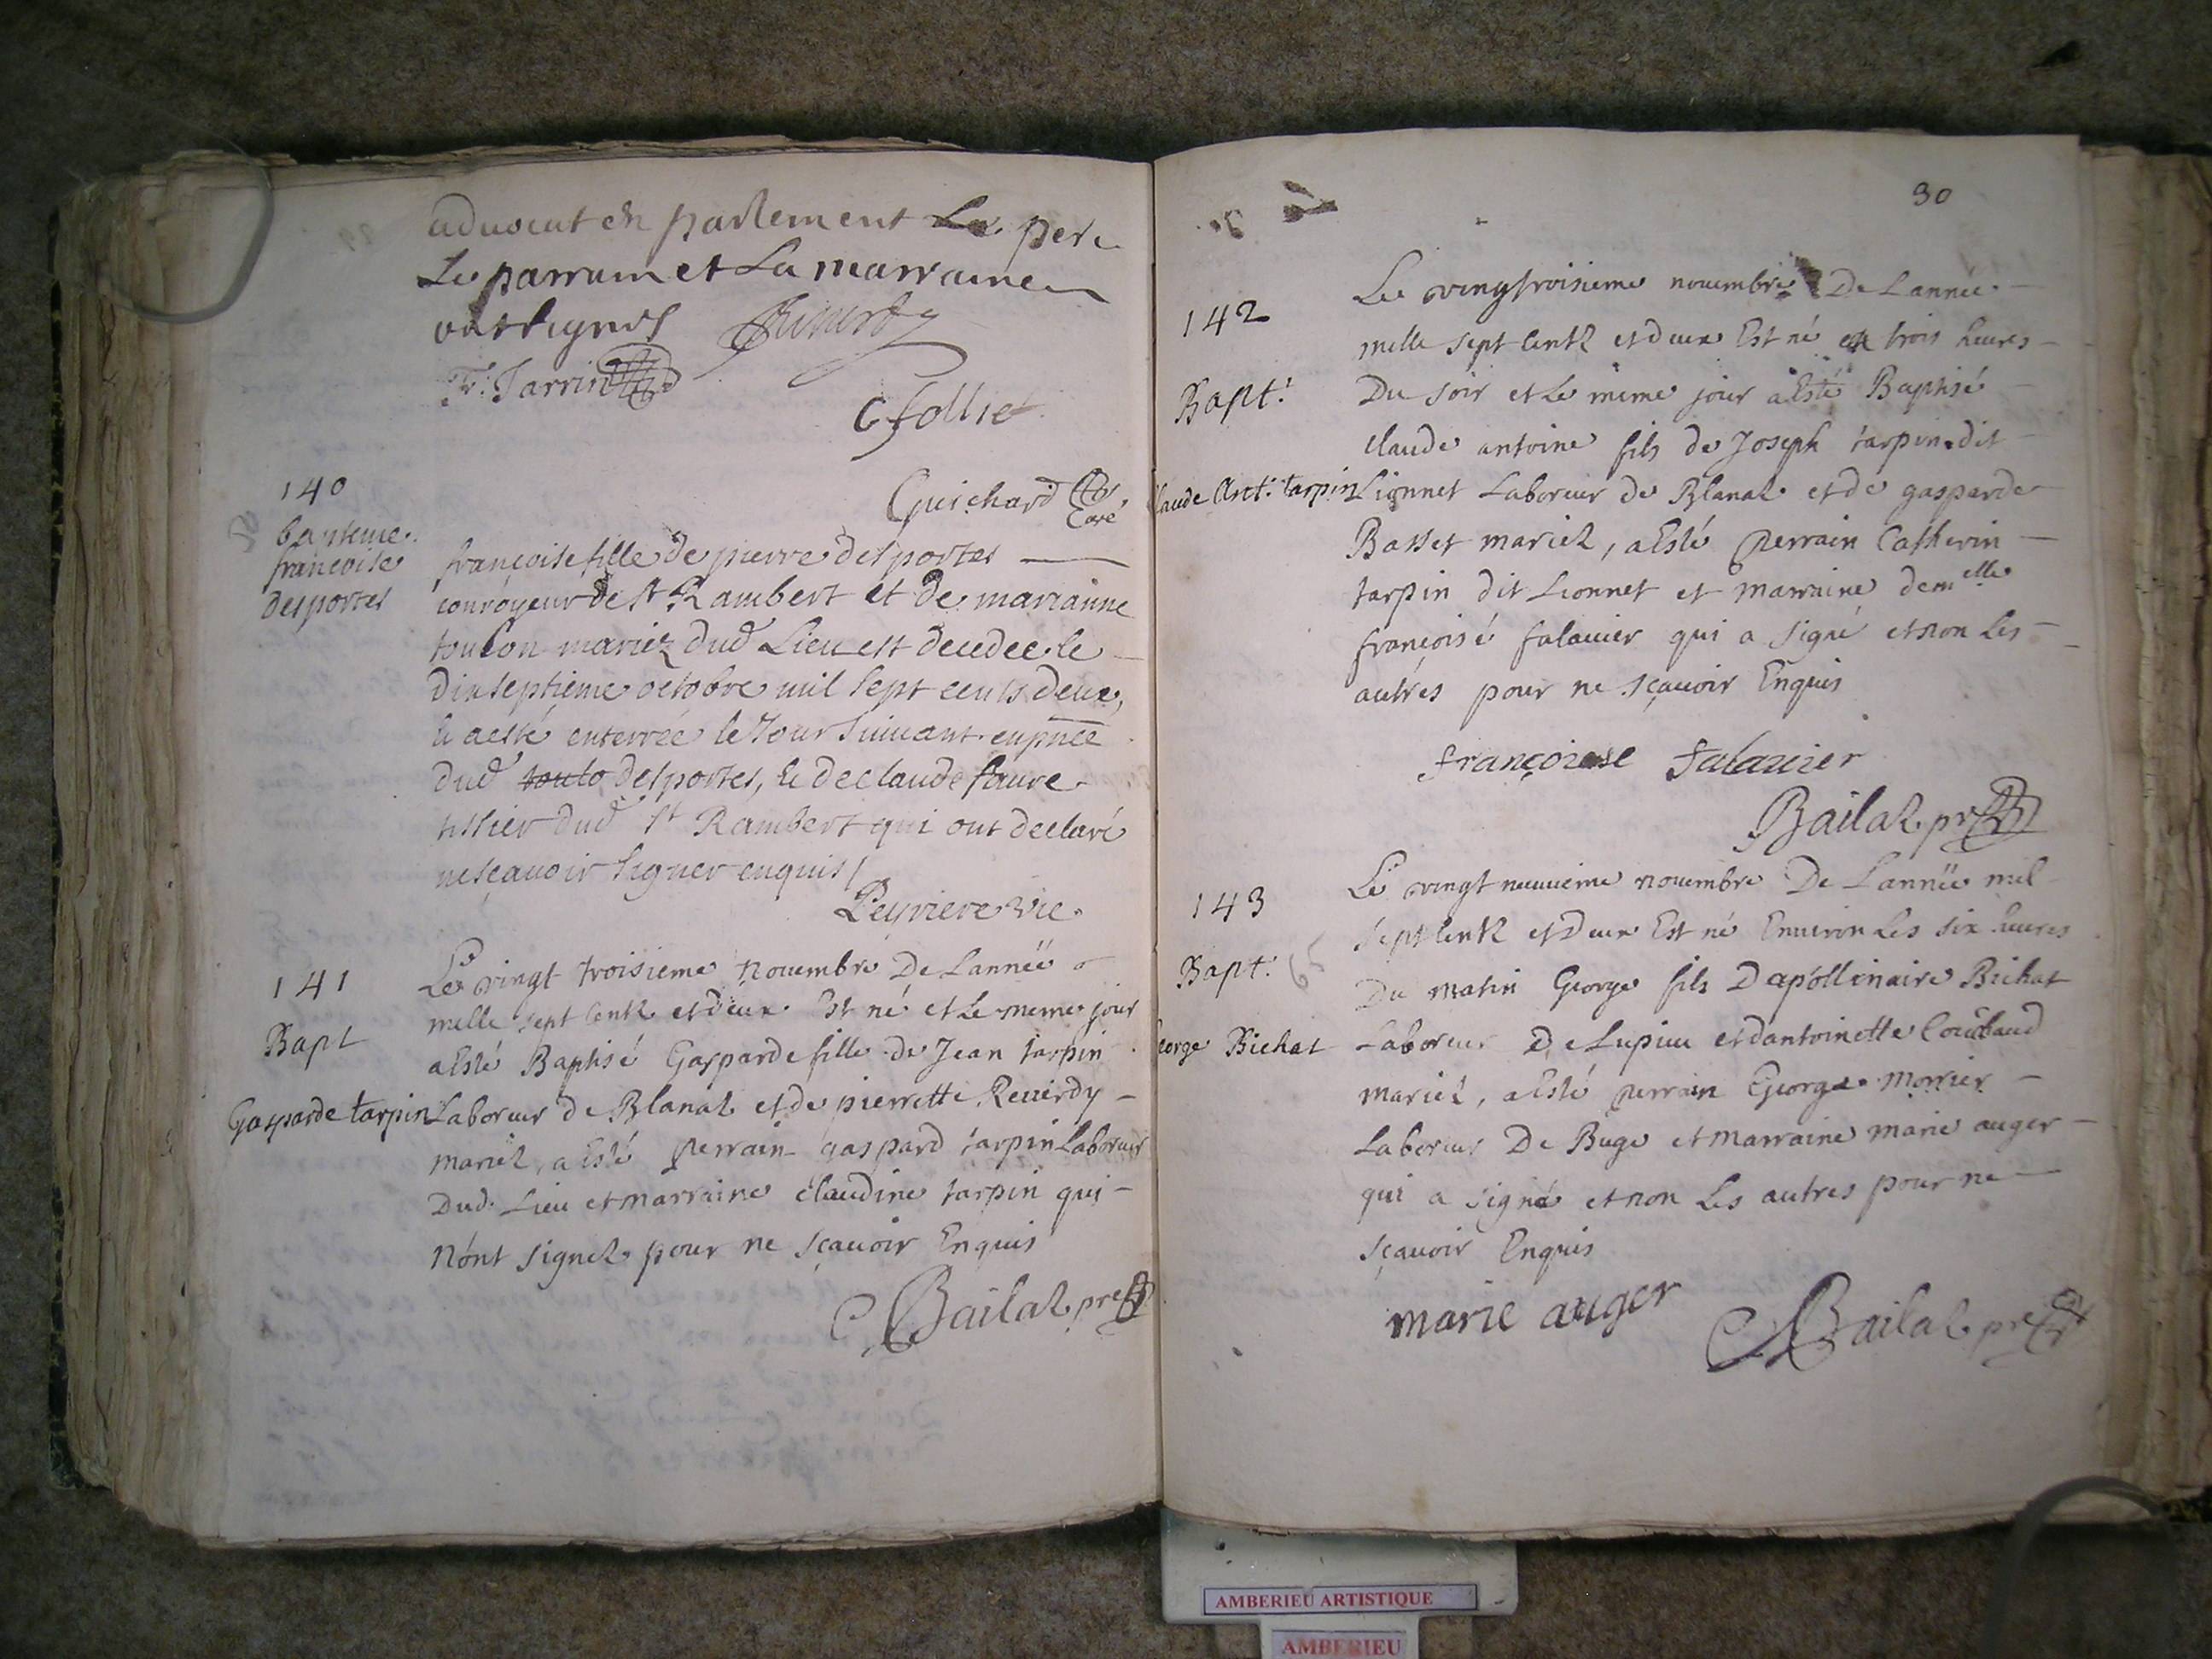 aduocat en parlement Le pere
Le parrain et La marraine
ont signes
Fr. Tarrin
C follie
Guichard
Curé
140
bapteme
francoise
desportes
françoise fille de pierre desportes
conroyeur de st Rambert et de marianne
toulon mariez dud Lieu est decedee le
dixseptieme octobre mil sept cents deux,
& a esté enterrée le Jour suiuant en pnce
dud touto desportes, & de claude faure
tissier dud st Rambert qui ont declaré
ne sçauoir signer enquis /
Peyriere vic.
141
Bapt
Gasparde tarpin
Le vingt troisieme nouembre De Lannëe
mille sept centz et deux Est né et Le meme jour
a Esté Baptisé Gasparde fille de Jean tarpin
Laboreur de Blanaz et de pierrette Reuerdy
mariez, a Esté perrain gaspard tarpin Laboreur
Dud. Lieu et marraine claudine tarpin qui
n'ont signez pour ne sçauoir Enquis
Bailaz pre
30
142
Bapt.
Claude Ant. tarpin
Le vingtroisieme nouembre De Lannée
mille sept centz et deux Est né en trois heures
Du soir et Le meme jour a Esté Baptisé
Claude antoine fils de Joseph tarpin dit
Lionnet Laboreur de Blanaz et de gasparde
Basset mariez, a Esté perrain Catherin
tarpin dit Lionnet et marraine demelle
françoise falauier qui a signé et non Les
autres pour ne sçauoir Enquis
françoise falauier
Bailaz pre
143
Bapt.
George Bichat
Le vingt neuuieme nouembre De Lannëe mil
sept centz et Deux Est né Enuiron Les six heures
Du matin George fils Dapollinaire Bichat
Laboreur De Lupieu et dantoinette Coubaud
mariez, a Esté perrain George morrier
Laboreur De Buge et marraine marie auger
qui a signé et non Les autres pour ne
sçauoir Enquis
marie auger
Bailaz pre
AMBERIEU ARTISTIQUE
AMBERIEU